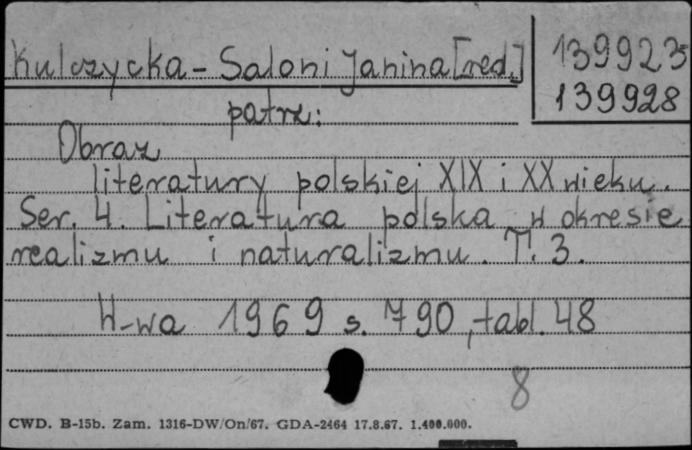 Kulczycka-Saloni Janina [red.]
139923
139928
patrz:
Obraz
literatury polskiej XIX i XX wieku.
Ser. 4. Literatura polska w okresie
realizmu i naturalizmu. T. 3.
W-wa 1969 s. 790, tabl. 48
8
CWD. B-15b. Zam. 1316-DW/On/67. GDA-2464 17.8.67. 1.400.000.